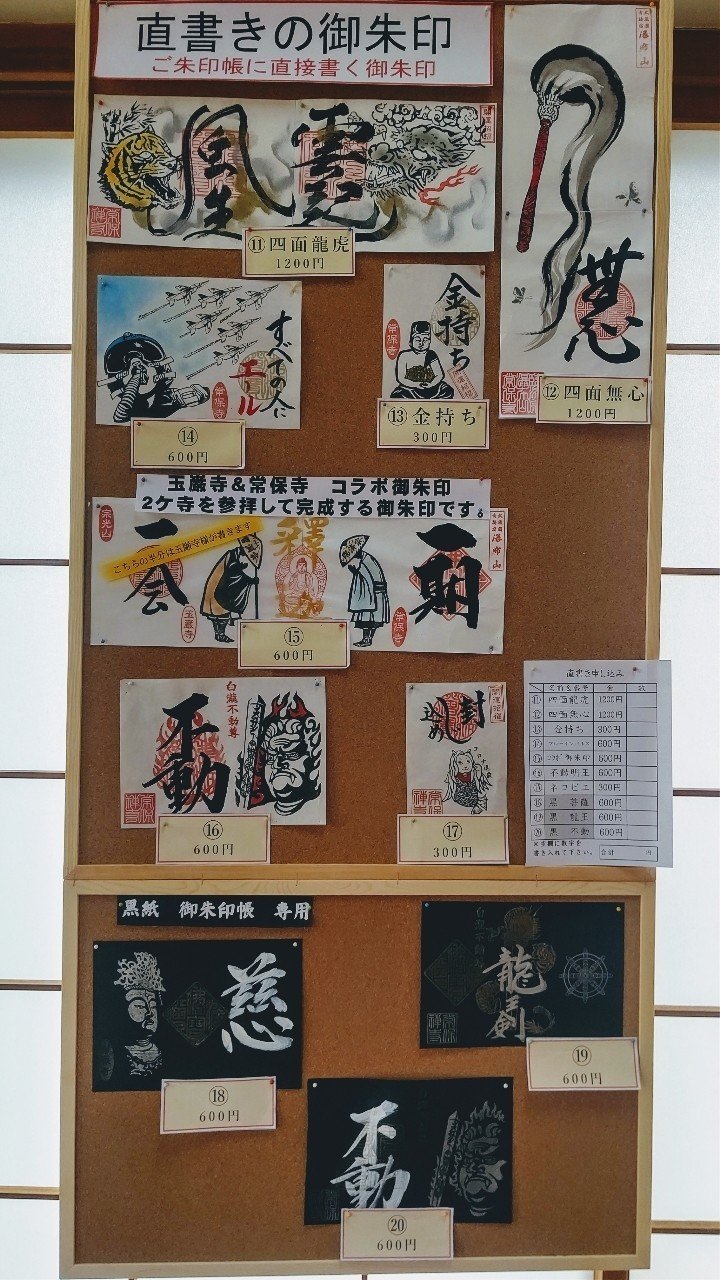 直書きの御朱印
ご朱印帳に直接書く御朱印
風生
雲起
⑪四面龍虎
1200円
無心
⑫四面無心
1200円
すべての人に
エール
常保寺
⑭
600円
金持ち
常保寺
⑬金持ち
300円
玉巌寺&常保寺 コラボ御朱印
2ケ寺を参拝して完成する御朱印です。
こちらの半分は玉巌寺様が書きます
一会
玉巌寺
釋迦
常保寺
一期
⑮
600円
不動
白瀧不動尊
⑯
600円
封
込め
⑰
300円
直書き申し込み
名前&番号 金 数
⑪ 四面龍虎 1200円
⑫ 四面無心 1200円
⑬ 金持ち 300円
⑭ 600円
⑮ コラボ御朱印 600円
⑯ 不動明王 600円
⑰ ネコビエ 300円
⑱ 黒 菩薩 600円
⑲ 黒 龍王 600円
⑳ 黒 不動 600円
※右欄に数字を
書き入れて下さい。 合計 円
黒紙 御朱印帳 専用
慈心
⑱
600円
白瀧不動
龍王剣
⑲
600円
不動
⑳
600円